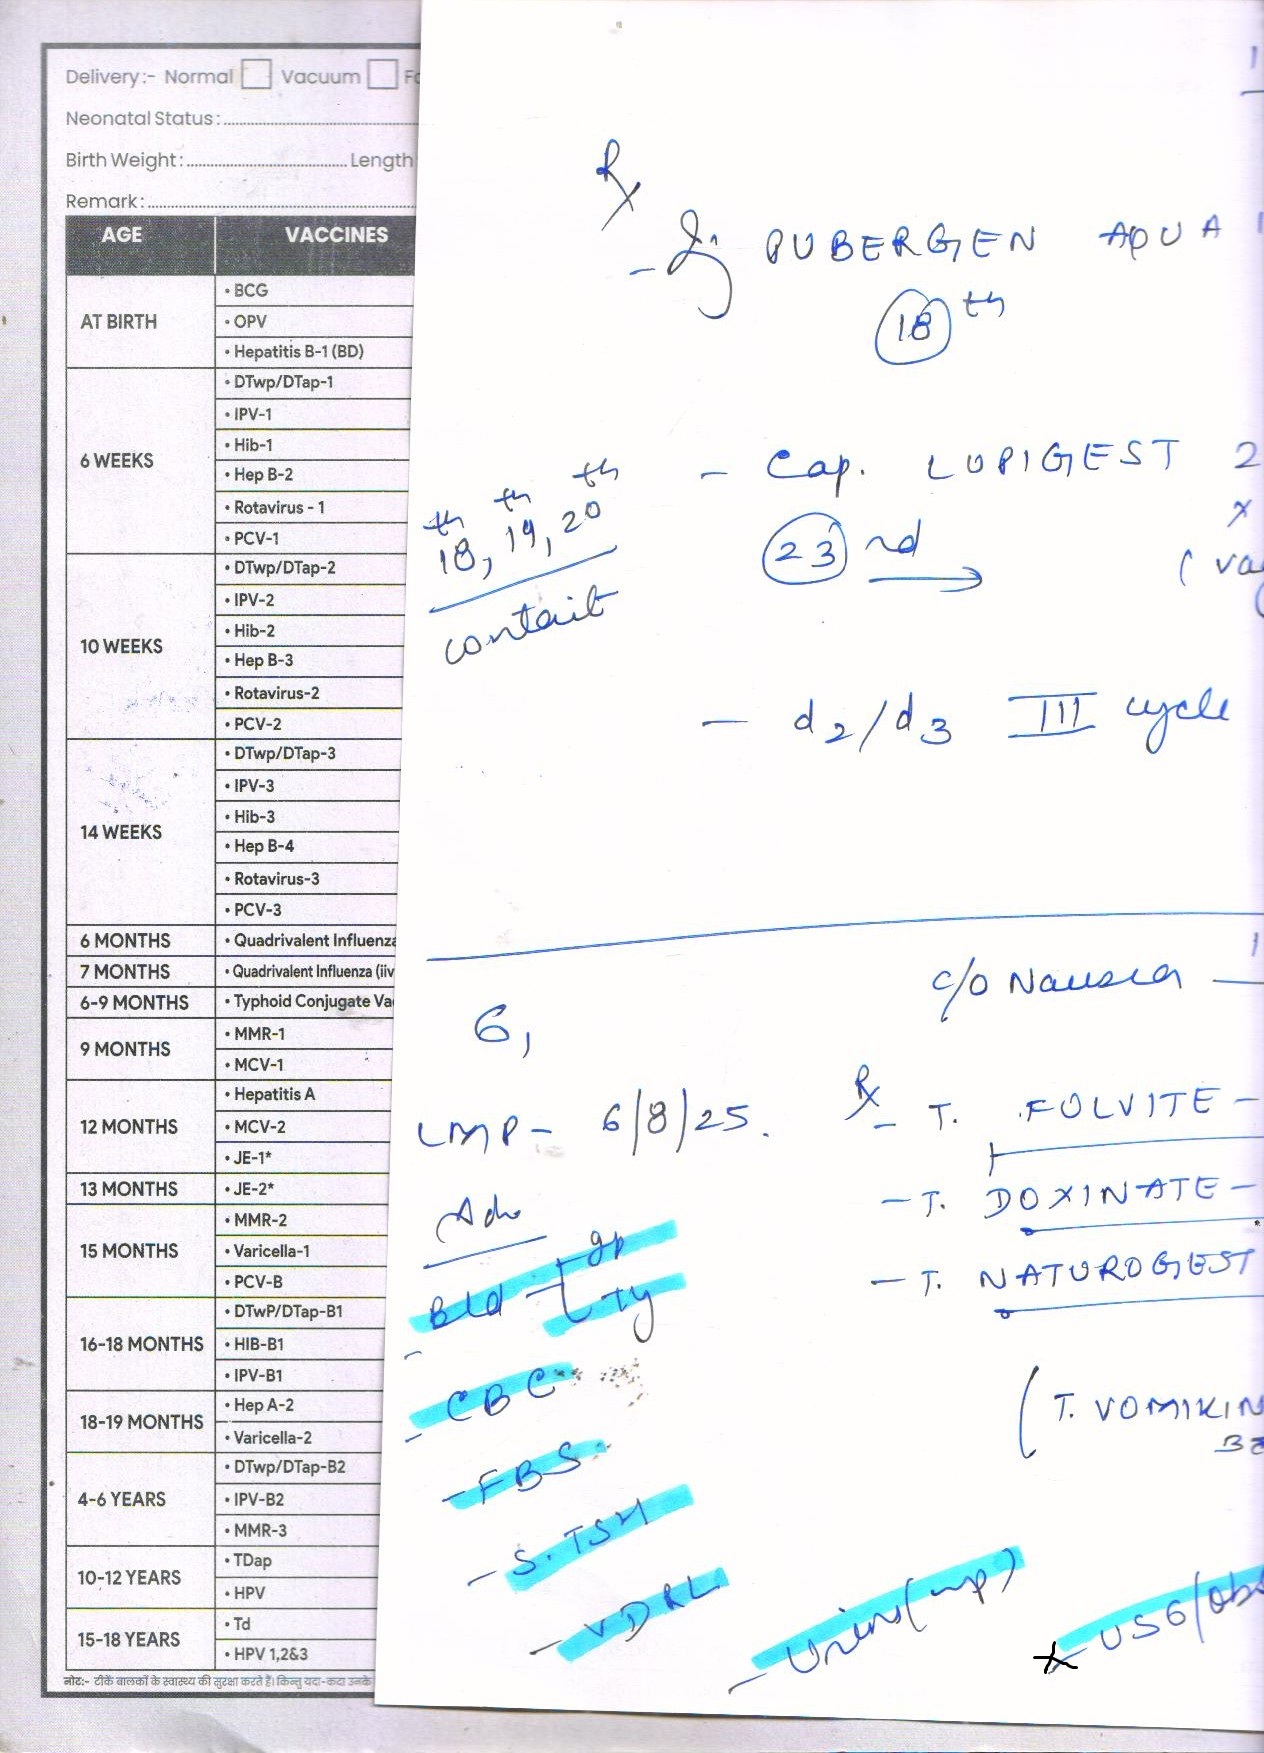 Delivery:- Normal Vacuum
Neonatal Status:
Birth Weight: Length
Remark:
AGE VACCINES
AT BIRTH
• BCG
• OPV
• Hepatitis B-1 (BD)
6 WEEKS
• DTwp/DTap-1
• IPV-1
• Hib-1
• Hep B-2
• Rotavirus - 1
• PCV-1
10 WEEKS
• DTwp/DTap-2
• IPV-2
• Hib-2
• Hep B-3
• Rotavirus-2
• PCV-2
14 WEEKS
• DTwp/DTap-3
• IPV-3
• Hib-3
• Hep B-4
• Rotavirus-3
• PCV-3
6 MONTHS • Quadrivalent Influenza
7 MONTHS • Quadrivalent Influenza (iiv
6-9 MONTHS • Typhoid Conjugate Va
9 MONTHS
• MMR-1
• MCV-1
12 MONTHS
• Hepatitis A
• MCV-2
• JE-1*
13 MONTHS • JE-2*
15 MONTHS
• MMR-2
• Varicella-1
• PCV-B
16-18 MONTHS
• DTwP/DTap-B1
• HIB-B1
• IPV-B1
18-19 MONTHS
• Hep A-2
• Varicella-2
4-6 YEARS
• DTwp/DTap-B2
• IPV-B2
• MMR-3
10-12 YEARS
• TDap
• HPV
15-18 YEARS
• Td
• HPV 1,2&3
नोट:- टीकें बालकों के स्वास्थ्य की सुरक्षा करते हैं। किन्तु यदा-कदा उनके
Rx
- Inj PUBERGEN AQUA
18th
- Cap. LUPIGEST 2
23rd →
x
(va
18th, 19th, 20th
contact
- d2/d3 III cycle
c/o Nausea -
LMP - 6/8/25.
Rx - T. FOLVITE -
- T. DOXINATE -
- T. NATUROGEST
(T. VOMIKIN
Adv
- Bld gp
Ty
- CBC
- FBS
- S. TSH
- VDRL
- Urine (mp)
- USG/Obs